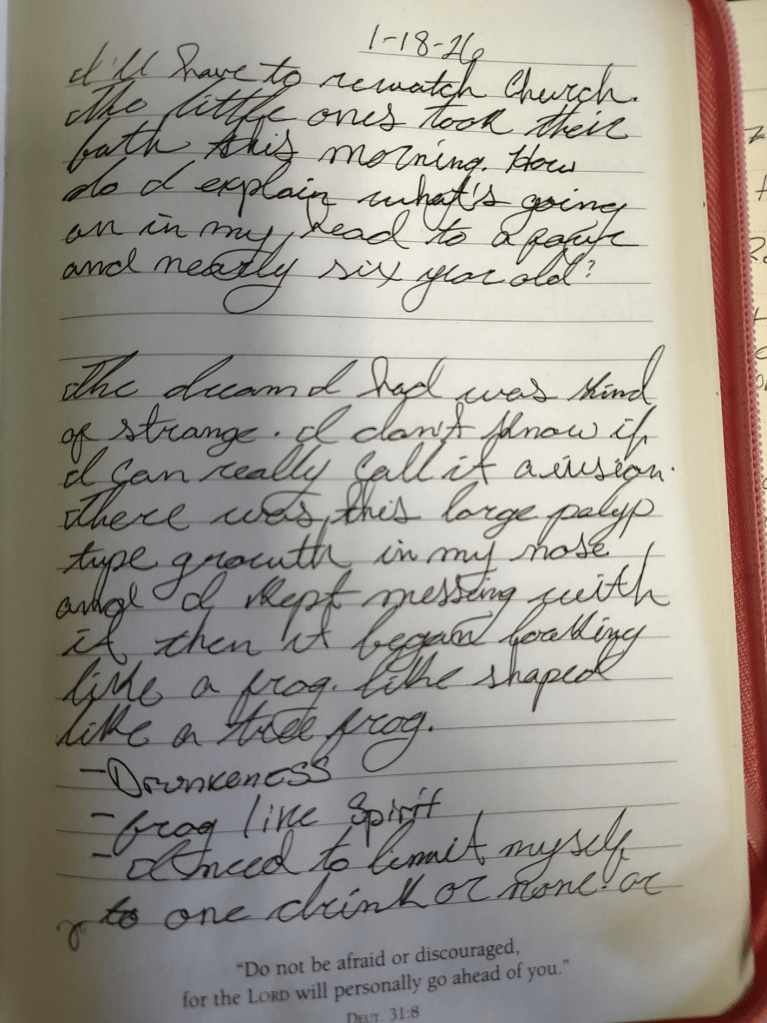 1-18-26
I'll have to rewatch Church.
The little ones took their
bath this morning. How
do I explain what's going
on in my head to a four
and nearly six year old?
The dream I had was kind
of strange. I don't know if
I can really call it a vision.
There was this large polyp
type growth in my nose
and I kept messing with
it then it began looking
like a frog. like shaped
like a tree frog.
- Drunkeness
- frog like Spirit
- I need to limit myself
to one drink or none. or
"Do not be afraid or discouraged,
for the LORD will personally go ahead of you."
DEUT. 31:8